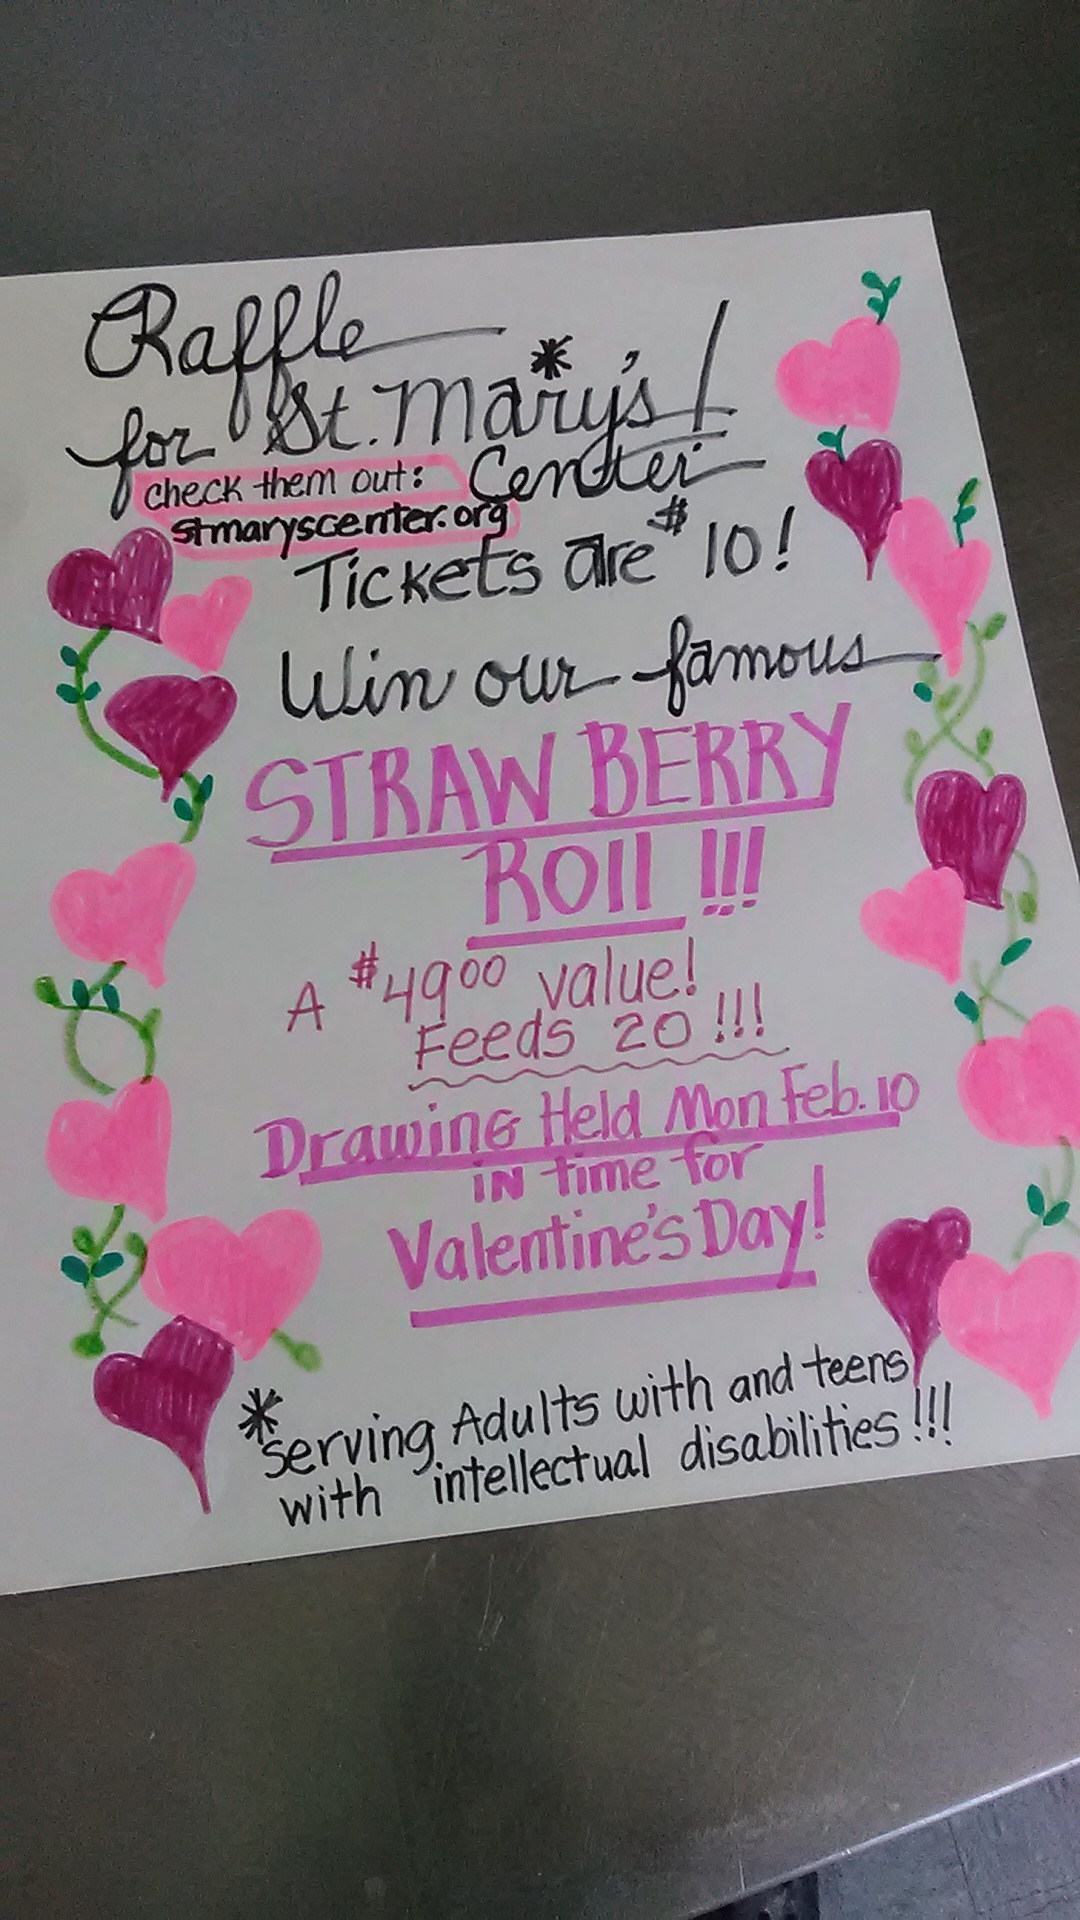 Raffle
for St. Mary's!
*
Center
check them out:
stmaryscenter.org
Tickets are $10!
Win our famous
STRAWBERRY
ROll !!!
A $49.00 value!
Feeds 20 !!!
Drawing Held Mon Feb. 10
in time for
Valentine's Day!
*serving Adults with and teens
with intellectual disabilities!!!